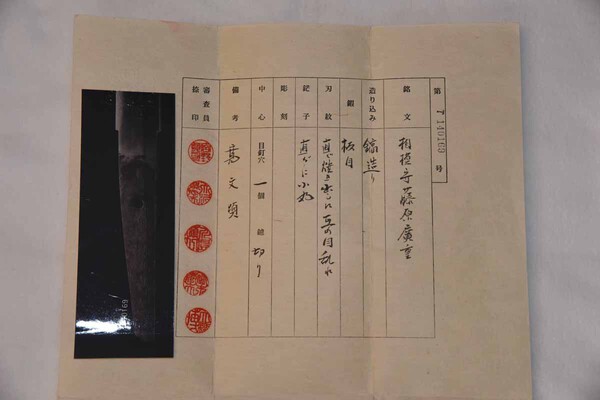 第 T 140169 号
銘文 相模守藤原廣重
造り込み 鎬造り
鍛 板目
刃紋 直ぐ焼き出しに互の目乱れ
鋩子 直ぐに小丸
彫刻
中心 目釘穴 一個 鑢 切り
備考 寛文頃
審査員捺印